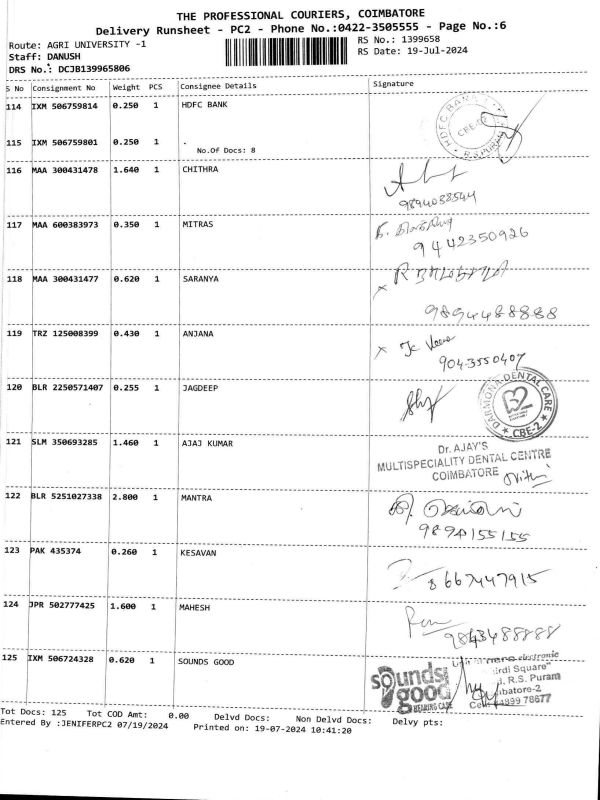 THE PROFESSIONAL COURIERS, COIMBATORE
Delivery Runsheet - PC2 - Phone No.:0422-3505555 - Page No.:6
Route: AGRI UNIVERSITY -1
RS No.: 1399658
Staff: DANUSH
RS Date: 19-Jul-2024
DRS No.: DCJB139965806
S No Consignment No Weight PCS Consignee Details Signature
114 IXM 506759814 0.250 1 HDFC BANK
HDFC BANK
CBE-02
R.S.PURAM
115 IXM 506759801 0.250 1 .
No.Of Docs: 8
116 MAA 300431478 1.640 1 CHITHRA
9894038544
117 MAA 600383973 0.350 1 MITRAS
9442350926
118 MAA 300431477 0.620 1 SARANYA
9894488888
119 TRZ 125008399 0.430 1 ANJANA
9043550407
120 BLR 2250571407 0.255 1 JAGDEEP
DARMONA DENTAL CARE
CBE-2
121 SLM 350693285 1.460 1 AJAJ KUMAR
Dr. AJAY'S
MULTISPECIALITY DENTAL CENTRE
COIMBATORE
122 BLR 5251027338 2.800 1 MANTRA
9894155155
123 PAK 435374 0.260 1 KESAVAN
8667447915
124 JPR 502777425 1.600 1 MAHESH
9843488888
125 IXM 506724328 0.620 1 SOUNDS GOOD
sounds
good
HEARING CARE
electronic
Square"
R.S. Puram
batore-2
Cell: 4899 78677
Tot Docs: 125 Tot COD Amt: 0.00 Delvd Docs: Non Delvd Docs: Delvy pts:
Entered By :JENIFERPC2 07/19/2024 Printed on: 19-07-2024 10:41:20